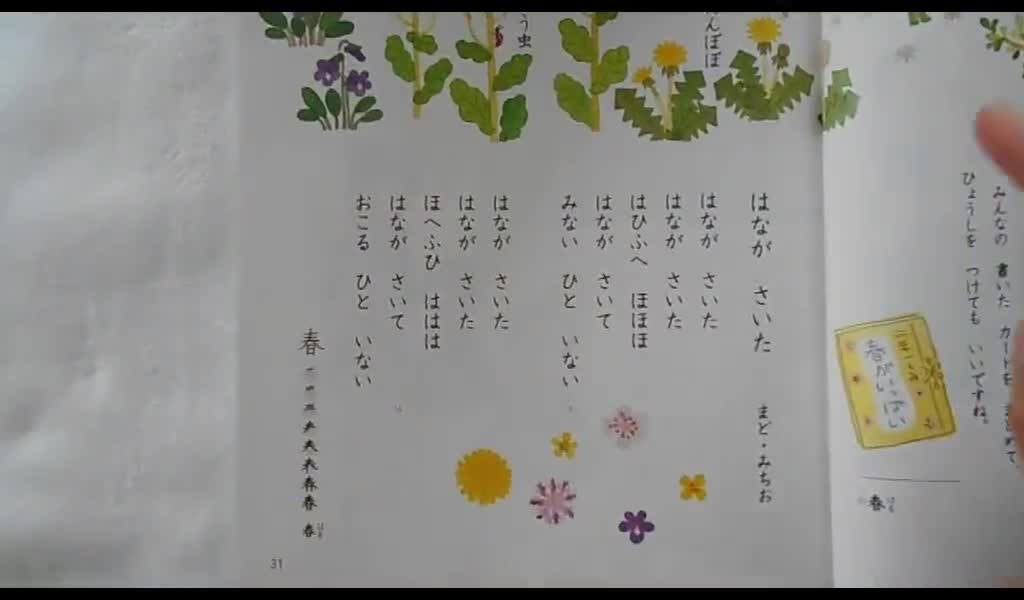 みんなの 書いた カードを まとめて、
ひょうしを つけても いいですね。
春がいっぱい
春
はる
んぽぽ
う虫
はなが さいた
まど・みちお
はなが さいた
はなが さいた
はひふへ ほほほ
はなが さいて
みない ひと いない
はなが さいた
はなが さいた
ほへふひ ははは
はなが さいて
おこる ひと いない
春
春
はる
31